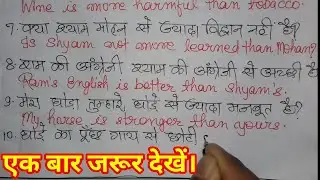 Wine is more harmful than tobacco.
7. क्या श्याम मोहन से ज्यादा विद्वान नहीं है?
Is Shyam not more learned than Mohan?
8. राम की अंग्रेजी श्याम की अंग्रेजी से अच्छी है
Ram's English is better than Shyam's.
9. मेरा घोड़ा तुम्हारे घोड़े से ज्यादा मजबूत है?
My horse is stronger than yours.
10. घोड़े का पूँछ गाय से छोटी
एक बार जरूर देखें।